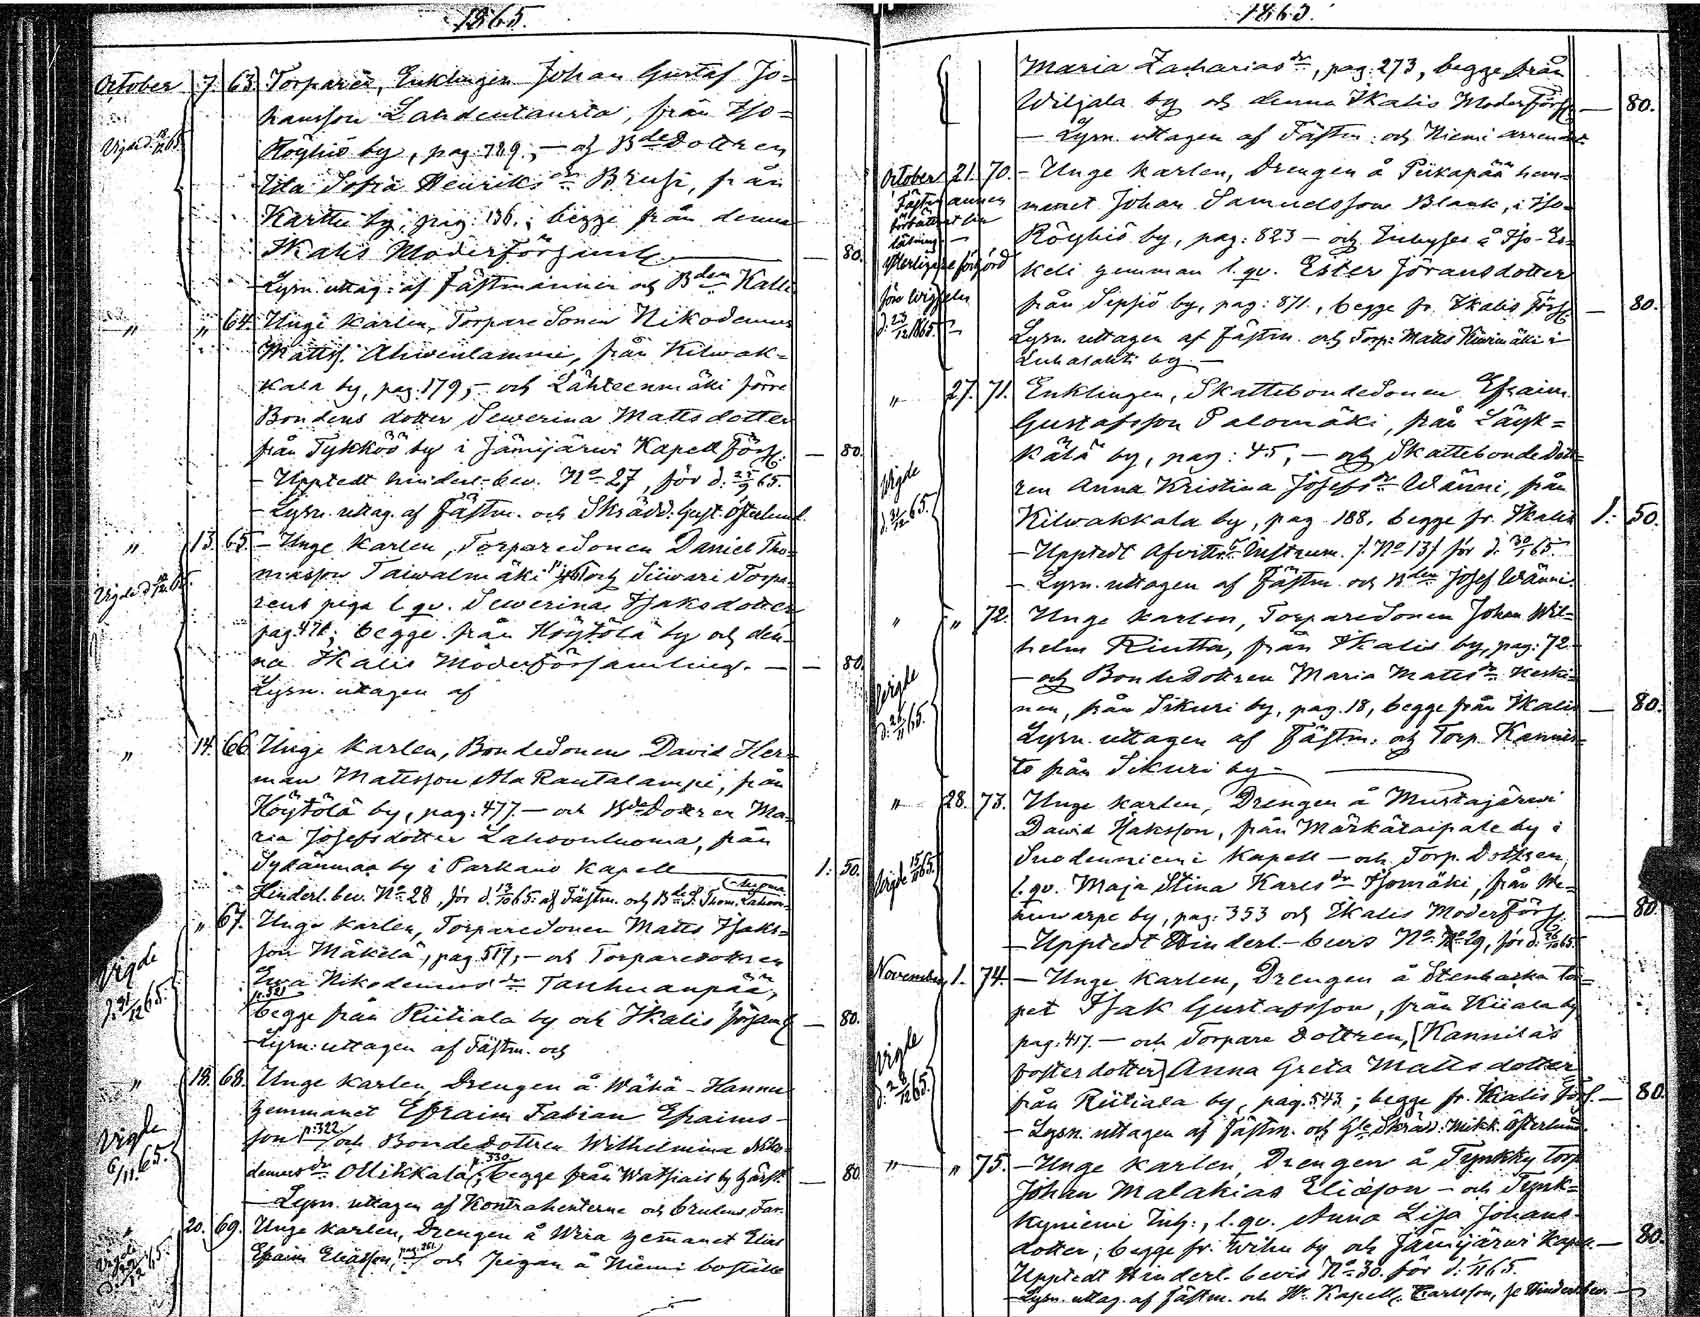 1865.
October 7. 63. Torparen, Enklingen Johan Gustaf Jo=
hansson Landentausta, från Iso=
Röyhiö by, pag. 789, – och Bde Dottren
Vigde d. 65.
Ida Sofia Henriksdr Brusi, från
Karttu by, pag. 136, begge från denna
Ikalis Moderförsaml. — 80.
Lysn. uttag. af Fästmannen och Bden Kalle
„ „ 64. Unge karlen, TorpareSonen Nikodemus
Mattss. Ahvenlammi, från Kilwak=
kala by, pag. 179, – och Lähteenmäki förre
Bondens dotter Sewerina Mattsdotter
från Tykköö by i Jämijärwi Kapell Förs. — 80.
– Upptedt hinderl. bev. No 27, för d. 25/9 65.
– Lysn. uttag. af Fästm. och Skrädd. Gust. Österlund.
„ 13. 65. – Unge karlen, TorpareSonen Daniel Tho=
masson Taiwalmäki och Siiwari Torpa=
Vigde d. 65.
rens piga l. qv. Sewerina Isaksdotter
pag. 478; begge från Höytölä by och den=
na Ikalis Moderförsamling. — — 80.
Lysn. uttagen af
„ 14. 66. Unge karlen, BondeSonen David Her=
man Mattsson Ala Rautalampi, från
Höytölä by, pag. 477. – och BdeDottren Ma=
ria Josefsdotter Lahdenluoma, från
Sydänmaa by i Parkano Kapell 1. 50.
Hinderl. bev. No 28, för d. 13/10 65. af Fästm. och Bde S. Thom.
„ 67. Unge karlen, TorpareSonen Matts Isaks=
son Mäkelä, pag. 517, – och Torparedottren
Vigde
d. 31/12 65.
Ewa Nikodemusdr Tanhuanpää,
p. 521
begge från Riitiala by och Ikalis församl — 80.
– Lysn. uttagen af Fästm. och
„ 18. 68. Unge karlen, Drengen å Wähä-Hannu
hemmanet Efraim Fabian Efraims-
Vigde
6/11 65.
son p. 322 och Bondedottren Wilhelmina Niko=
demusdr Ollikkala, p. 330 begge från Watsiais by — 80.
– Lysn. uttagen af Kontrahenterne och brudens Far.
20. 69. Unge karlen, Drengen å Wira hemanet Elias
Efraim Eliasson, pag. 261 och Pigan å Niemi boställe
Vigde
1865.
Maria Zachariasdr, pag. 273, begge från
Wiljala by och denna Ikalis Moderförs. — 80.
– Lysn. uttagen af Fästm. och Niemi arrendat.
October 21. 70. – Unge karlen, Drengen å Piikapää hem=
manet Johan Samuelsson Blank, i Iso=
Fästmannen
förbättrat sin
läsning. –
Röyhiö by, pag. 823 – och Inhyses å Iso-Es=
keli hemman l. qv. Ester Göransdotter
från Sipsiö by, pag. 871, begge fr. Ikalis Förs. — 80.
ytterligare förhörd
före wigseln
d. 23/12 1865.
Lysn. uttagen af Fästm. och Torp. Matts Kiwimäki i
Luhalahti by –
„ 27. 71. Enklingen, SkattebondeSonen Efraim
Gustafsson Palomäki, från Läyk=
kälä by, pag. 45, – och SkattebondeDott=
Vigde
d. 31/12 65.
ren Anna Kristina Josefsdr Wänni, från
Kilwakkala by, pag. 188, begge fr. Ikalis 1. 50.
– Upptedt Afvittr. Instrum. /: No 13 :/ för d. 65.
– Lysn. uttagen af Fästm. och Bden Josef Wänni.
„ „ 72. Unge karlen, TorpareSonen Johan Wil=
helm Rintta, från Ikalis by, pag. 72.
– och BondeDottren Maria Mattsdr Keski=
Vigde
d. 26/11 65.
nen, från Sikuri by, pag. 18, begge från Ikalis — 80.
Lysn. uttagen af Fästm. och Torp. Kannis=
to från Sikuri by –
„ 28. 73. Unge karlen, Drengen å Mustajärwi
David Isaksson, från Märkätaipale by i
Suodenniemi Kapell – och Torp. Dottren
Vigde 15/ 65.
l. qv. Maja Stina Karlsdr Isomäki, från
by, pag. 353 och Ikalis Moderförs. — 80.
– Upptedt Hinderl.-bevis No 29, för d. 26/10 65.
November 1. 74. – Unge karlen, Drengen å Stenbacka tor=
pet Isak Gustafsson, från Kiiala by
pag. 417. – och Torpare Dottren, [Kannilas
Vigde
d. 65.
fosterdotter] Anna Greta Mattsdotter
från Riitiala by, pag. 543; begge fr. Ikalis Förs. — 80.
– Lysn. uttagen af Fästm. och Skräd. Mikk. Österlund.
„ „ 75. – Unge karlen, Drengen å Tynkky torp
Johan Malakias Eliasson – och Tynk=
kyniemi Inh., l. qv. Anna Lisa Johans-
dotter; begge fr. by och Jämijärwi Kapell — 80.
Upptedt Hinderl. bevis No 30. för d. 65.
– Lysn. uttag. af Fästm. och Kapell. Carlsson, se Hinderl. bev.